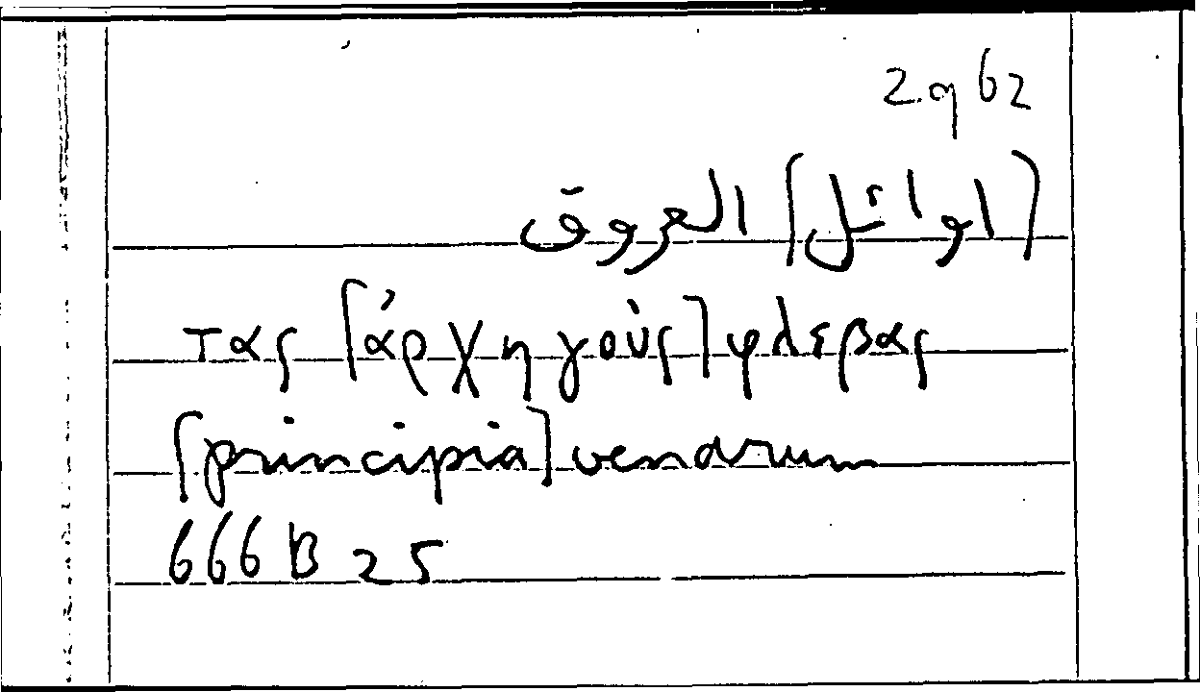 2.9 62
[اوائل] العروق
τας [ἀρχηγοὺς] φλεβας
[principia] venarum
666 B 25